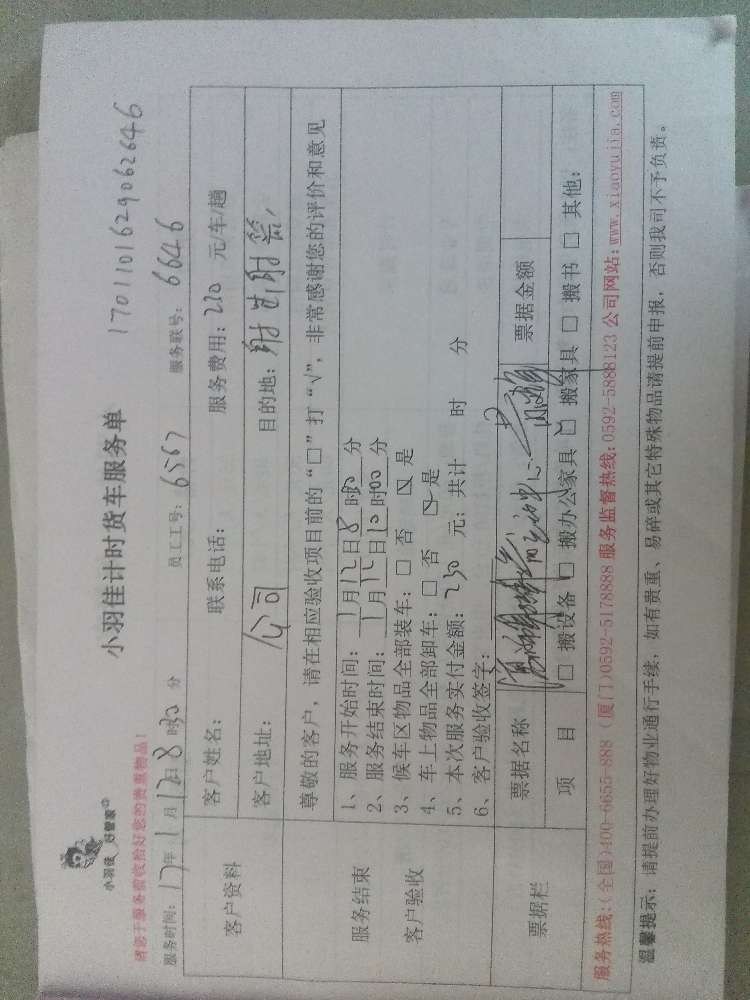 小羽佳 好管家
小羽佳计时货车服务单
17011016290626 46
请您于服务前收拾好您的贵重物品!
服务时间: 17年 1 月 12日 8 时30 分 员工工号: 6567 服务联号: 6646
客户资料
客户姓名: 联系电话: 服务费用: 210 元/车/趟
客户地址: 公司 目的地:
尊敬的客户, 请在相应验收项目前的“□”打“√”, 非常感谢您的评价和意见
服务结束
客户验收
1、服务开始时间: 1月12日8时30分
2、服务结束时间: 1月12日10时00分
3、候车区物品全部装车: □ 否 ☑ 是
4、车上物品全部卸车: □ 否 ☑ 是
5、本次服务实付金额: 230 元; 共计 时 分
6、客户验收签字:
票据栏
票据名称 票据金额
项 目 □ 搬设备 □ 搬办公家具 ☑ 搬家具 □ 搬书 □ 其他:
服务热线:(全国)400-6655-888 (厦门)0592-5178888 服务监督热线:0592-5888123 公司网站:www.xiaoyujia.com
温馨提示: 请提前办理好物业通行手续, 如有贵重、易碎或其它特殊物品请提前申报, 否则我司不予负责。